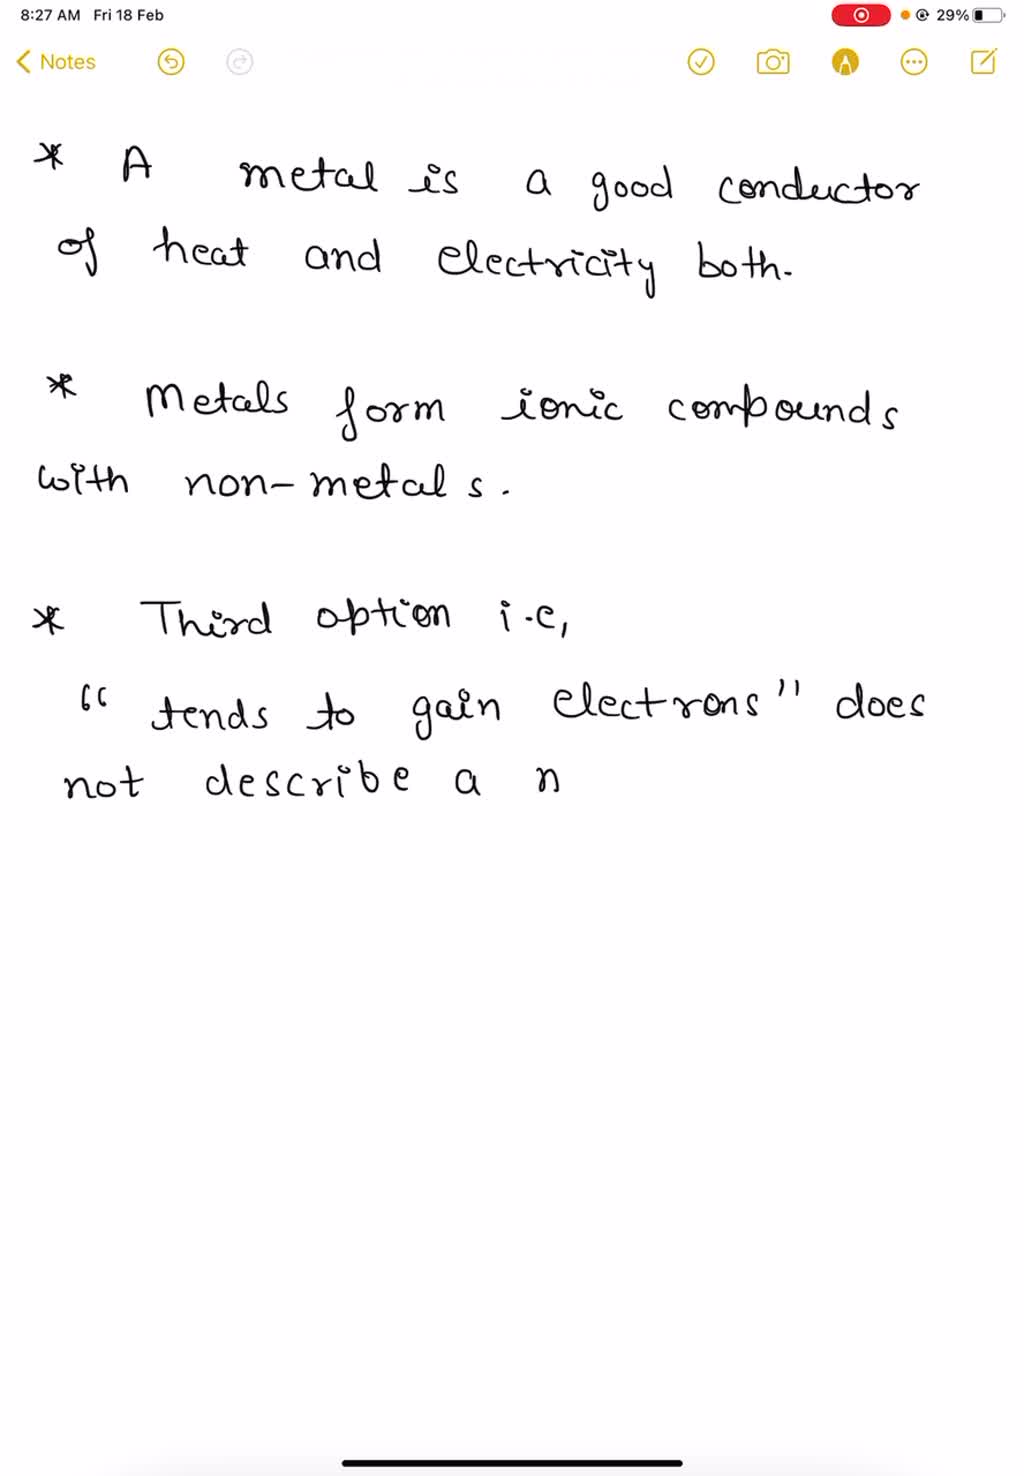 8:27 AM Fri 18 Feb 29%
Notes
* A metal is a good conductor
of heat and electricity both.
* Metals form ionic compounds
with non-metals.
* Third option i.e,
“ tends to gain electrons” does
not describe a n